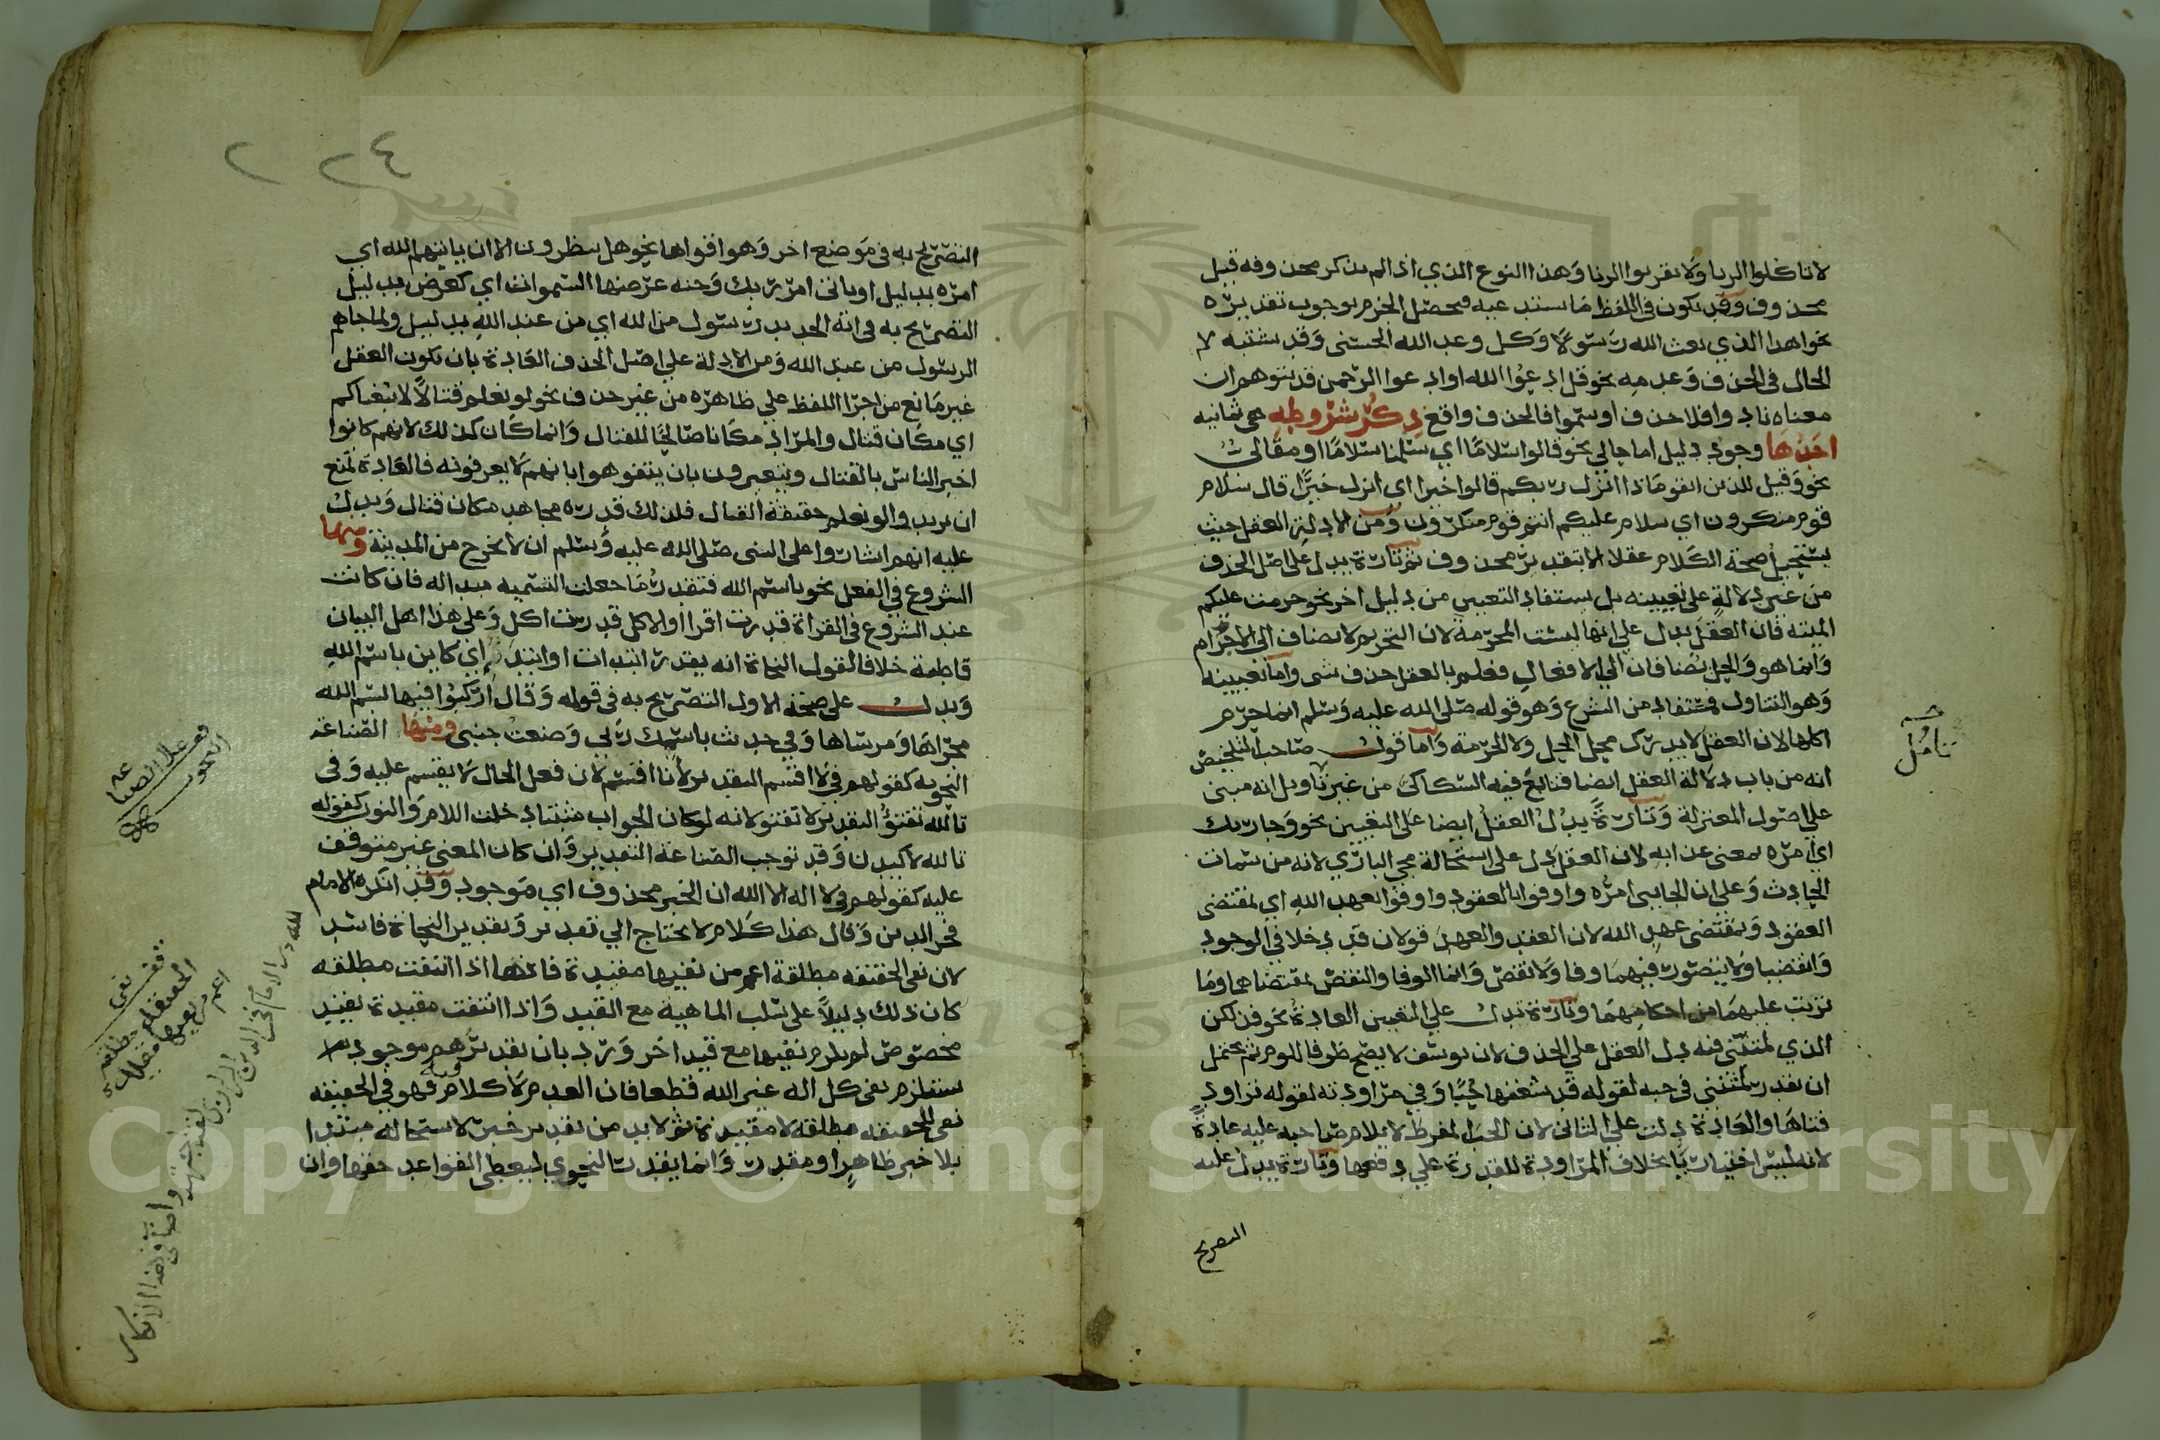 لا تاكلوا الربا ولا تقربوا الزنا وهذا النوع الذي اذا لم يذكر محذوفه قبل
محذوف وقد يكون في اللفظ ما يستدعيه فيحصل الجزم بوجوب تقديره
نحو اهذا الذي بعث الله رسولا وكل وعد الله الحسنى وقد يشتبه
الحال في الحذف وعدمه نحو قل ادعوا الله او ادعوا الرحمن قد يتوهم ان
معناه نادوا فلا حذف او سموا فالحذف واقع ذكر شروطه هي ثمانيه
احدها وجود دليل اما حالي نحو قالوا سلاما اي سلمنا سلاما او مقالي
نحو وقيل للذين اتقوا ماذا انزل ربكم قالوا خيرا اي انزل خيرا قال سلام
قوم منكرون اي سلام عليكم انتم قوم منكرون ومن الادلة العقل حيث
يستحيل صحة الكلام عقلا الا بتقدير محذوف ثم تارة يدل على اصل الحذف
من غير دلالة على تعيينه بل يستفاد التعيين من دليل اخر نحو حرمت عليكم
الميته فان العقل يدل على انها ليست المحرمة لان التحريم لا يضاف الى الاجرام
وانما هو والحل يضافان الى الافعال فعلم بالعقل حذف شى واما تعيينه
وهو التناول فمستفاد من الشرع وهو قوله صلى الله عليه وسلم انما حرم
اكلها لان العقل لا يدرك محل الحل ولا الحرمة واما قول صاحب التلخيص
انه من باب دلالة العقل ايضا فتابع فيه السكاكي من غير تاويل انه مبنى
على اصول المعتزلة وتارة يدل العقل ايضا على التعيين نحو وجا ربك
اي امره بمعنى عذابه لان العقل دل على استحالة مجي الباري لانه من سمات
الحادث وعلى ان الجايى امره واوفوا بالعقود واوفوا بعهد الله اي بمقتضى
العقود وبمقتضى عهد الله لان العقد والعهد قولان قد دخلا في الوجود
وانقضيا ولا يتصور فيهما وفا ولا نقض وانما الوفا والنقض بمقتضاهما وما
ترتب عليهما من احكامهما وتارة تدل على التعيين العادة نحو فذلكن
الذي لمتننى فيه دل العقل على الحذف لان يوسف لا يصح ظرفا للوم ثم يحتمل
ان يقدر لمتننى في حبه لقوله قد شغفها حبا وفي مراودته لقوله تراود
فتاها والعادة دلت على الثانى لان الحب المفرط لا يلام صاحبه عليه عادة
لانه ليس اختياريا بخلاف المراودة للقدرة على دفعها وتارة يدل عليه
التصريح
تامل
٢٢٤
التصريح به في موضع اخر وهو اقواها نحو هل ينظرون الا ان ياتيهم الله اي
امره بدليل او ياتى امر ربك وجنة عرضها السموات اي كعرض بدليل
التصريح به في اية الحديد رسول من الله اي من عند الله بدليل ولما جاهم
الرسول من عند الله ومن الادلة على اصل الحذف العادة بان يكون العقل
غير مانع من اجرا اللفظ على ظاهره من غير حذف نحو لو نعلم قتالا لاتبعناكم
اي مكان قتال والمراد مكانا صالحا للقتال وانما كان كذلك لانهم كانوا
اخبر الناس بالقتال ويتعيرون بان يتفوهوا بانهم لا يعرفونه فالعادة تمنع
ان يريدوا لو نعلم حقيقة القتال فلذلك قدره مجاهد مكان قتال ويدل
عليه انهم اشاروا على النبى صلى الله عليه وسلم ان لا يخرج من المدينة ومنها
الشروع في الفعل نحو باسم الله فتقدر ما جعلت التسمية مبدا له فان كانت
عند الشروع في القراة قدرت اقرا او الاكل قدرت اكل وعلى هذا اهل البيان
قاطبة خلافا لقول النحاة انه يقدر ابتدات او ابتدائي كاين باسم الله
ويدل على صحة الاول التصريح به في قوله وقال اركبوا فيها بسم الله
مجراها ومرساها وفي حديث باسمك ربي وضعت جنبى ومنها الصناعة
النحويه كقولهم في لا اقسم التقدير لانا اقسم لان فعل الحال لا يقسم عليه وفى
تالله تفتؤ التقدير لا تفتو لانه لو كان الجواب مثبتا دخلت اللام والنون كقوله
تالله لاكيدن وقد توجب الصناعة التقدير وان كان المعنى غير متوقف
عليه كقولهم في لا اله الا الله ان الخبر محذوف اي موجود وقد انكره الامام
فخر الدين وقال هذا كلام لا يحتاج الى تقدير وتقدير النحاة فاسد
لان نفى الحقيقه مطلقة اعم من نفيها مقيدة فانها اذا انتفت مطلقه
كان ذلك دليلا على سلب الماهية مع القيد واذا انتفت مقيدة بقيد
مخصوص لم يلزم نفيها مع قيد اخر ورد بان تقديرهم موجود
يستلزم نفى كل اله غير الله قطعا فان العدم لا كلام فيه فهو في الحقيقه
نفى للحقيقه مطلقه لا مقيدة ثم لا بد من تقدير خبر لاستحالة مبتدا
بلا خبر ظاهر او مقدر وانما يقدر النحوي ليعطى القواعد حقها وان
قف على الصناعه
النحويه
قف نفى
الحقيقه مطلقه
اعم من نفيها مقيدة
لله در الامام فخر الدين الرازي
وانصافه في هذا الانكار